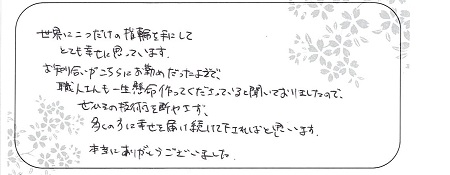 世界に二つだけの指輪を手にして
とても幸せに思っています.
お知り合いがこちらにお勤めだったようで、
職人さんも一生懸命作ってくださっていると聞いておりましたので、
ぜひその技術を絶やさず、
多くの方に幸せを届け続けて下さればと思います.
本当にありがとうございました.